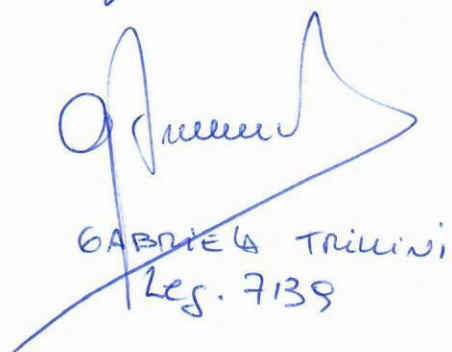 GABRIELA TRILLINI
Leg. 7139